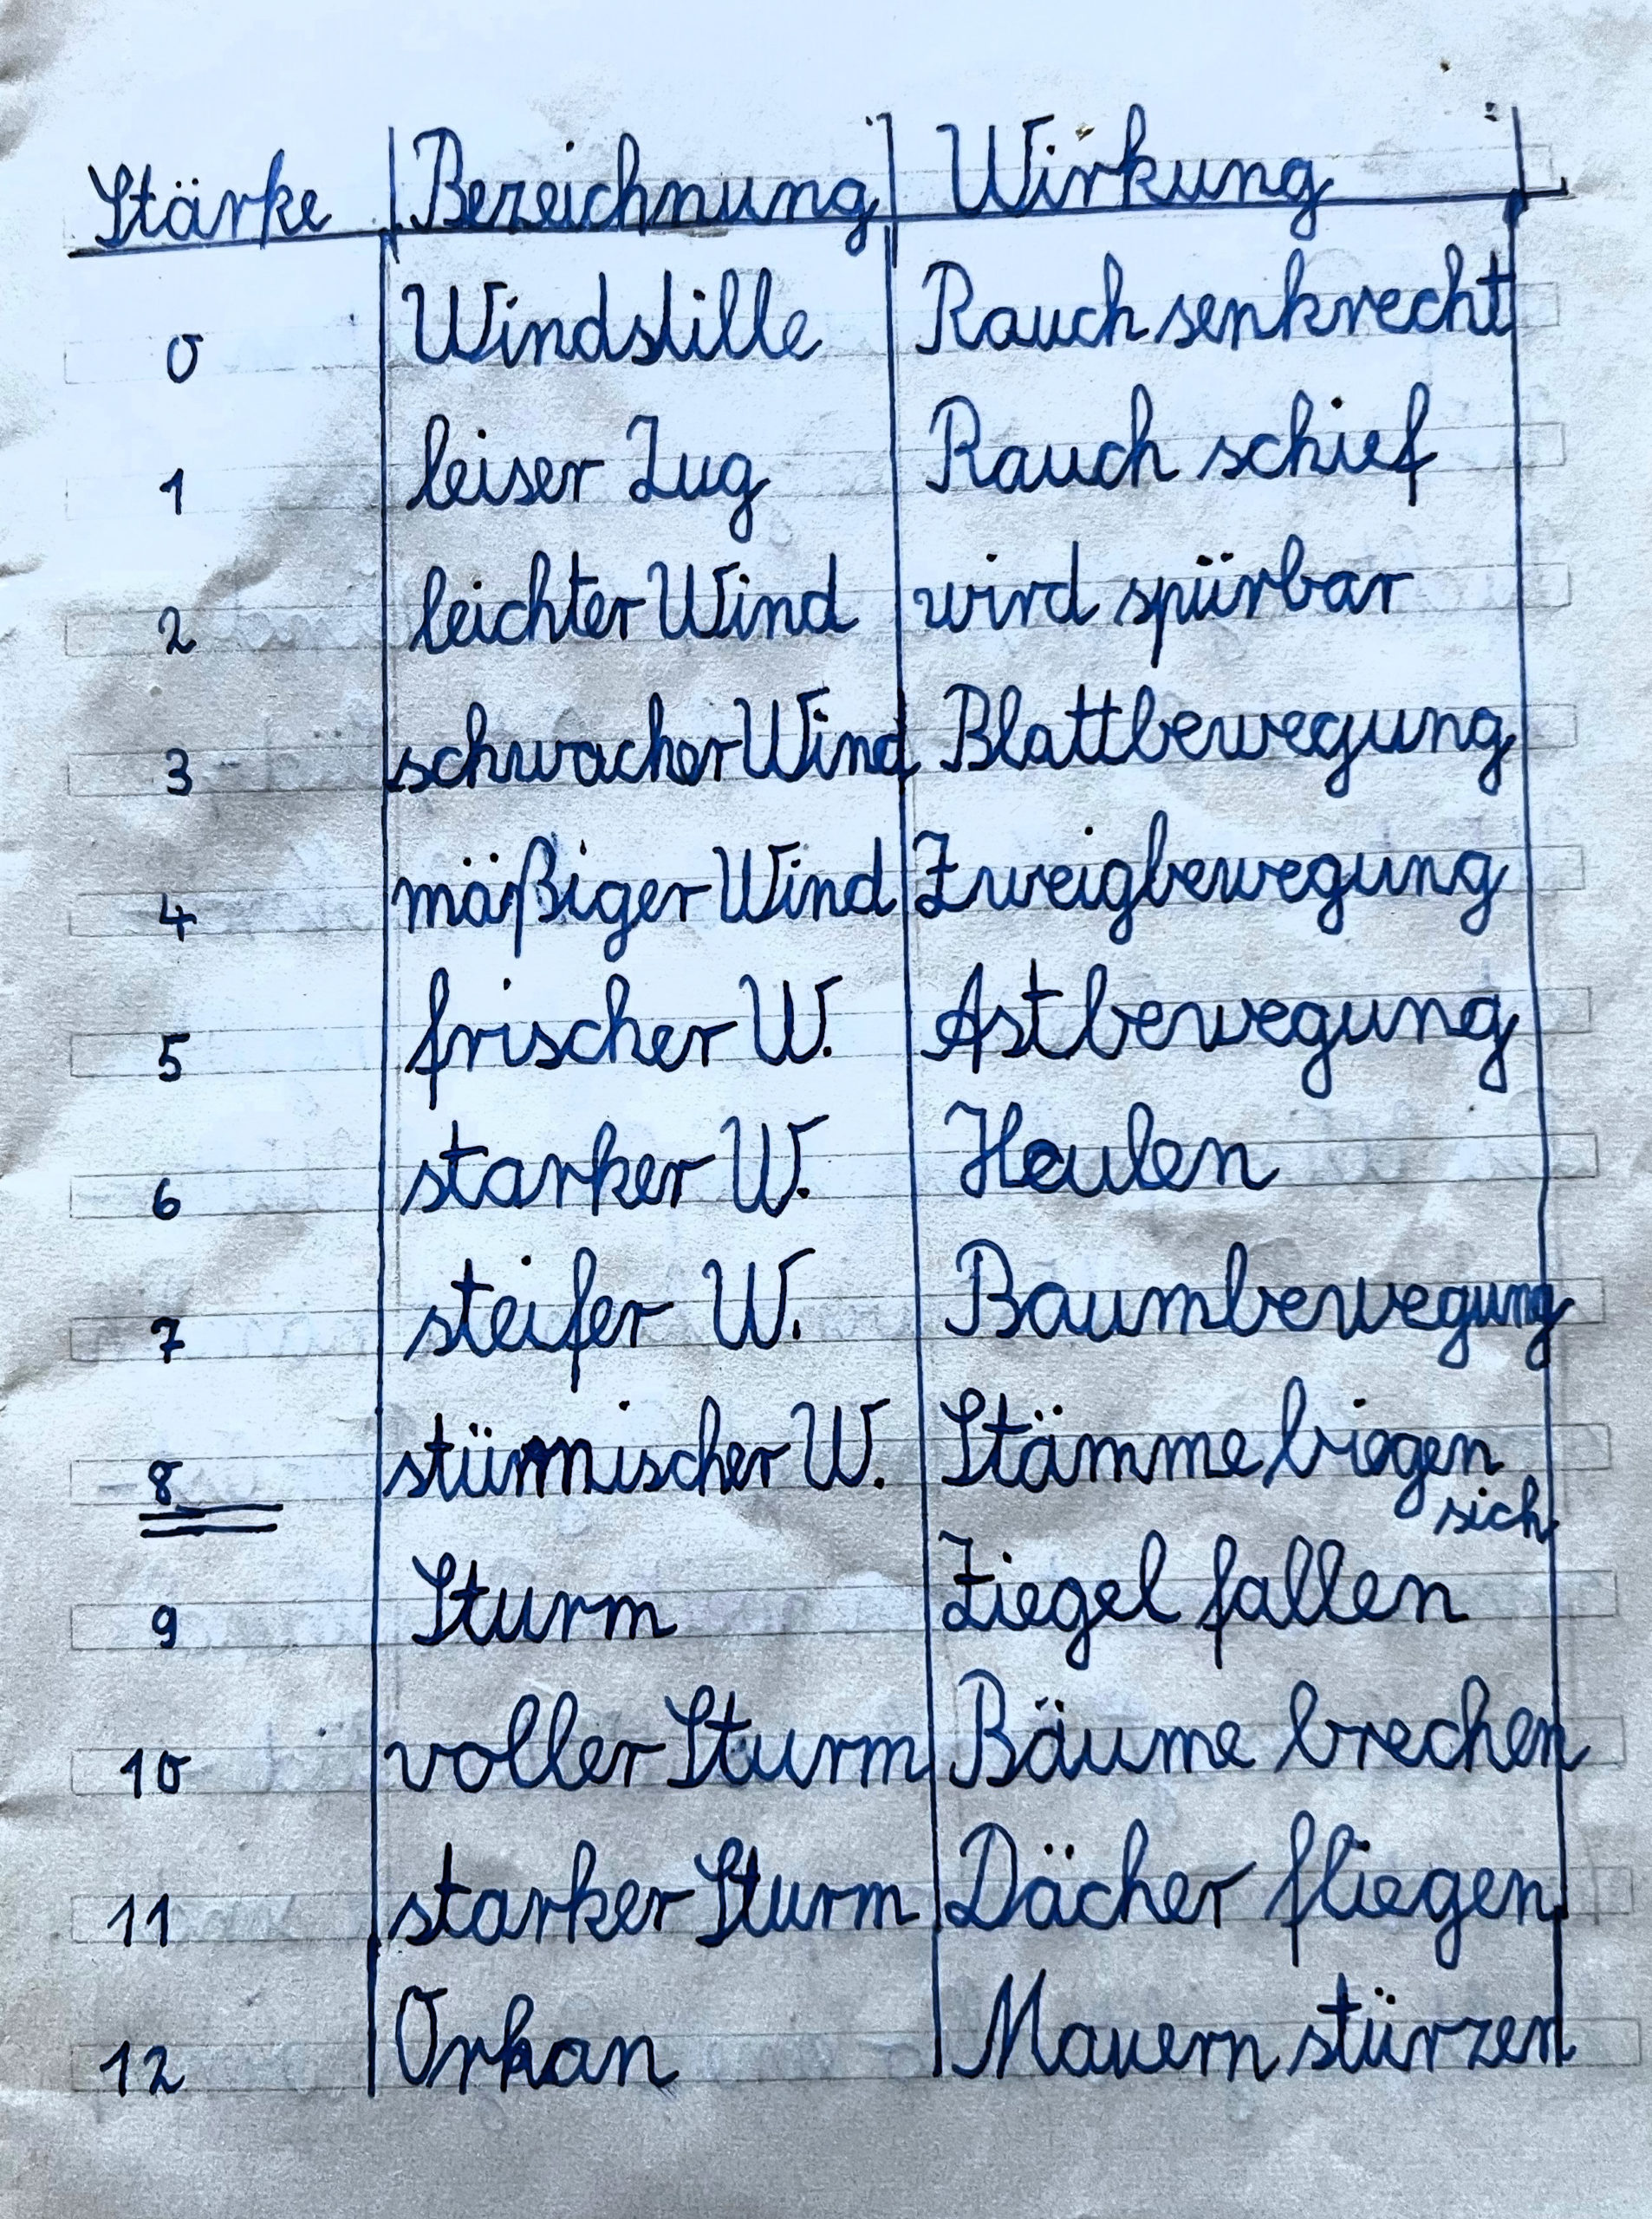 Stärke Bezeichnung Wirkung
0 Windstille Rauch senkrecht
1 leiser Zug Rauch schief
2 leichter Wind wird spürbar
3 schwacher Wind Blattbewegung
4 mäßiger Wind Zweigbewegung
5 frischer W. Astbewegung
6 starker W. Heulen
7 steifer W. Baumbewegung
8 stürmischer W. Stämme biegen
sich
9 Sturm Ziegel fallen
10 voller Sturm Bäume brechen
11 starker Sturm Dächer fliegen
12 Orkan Mauern stürzen